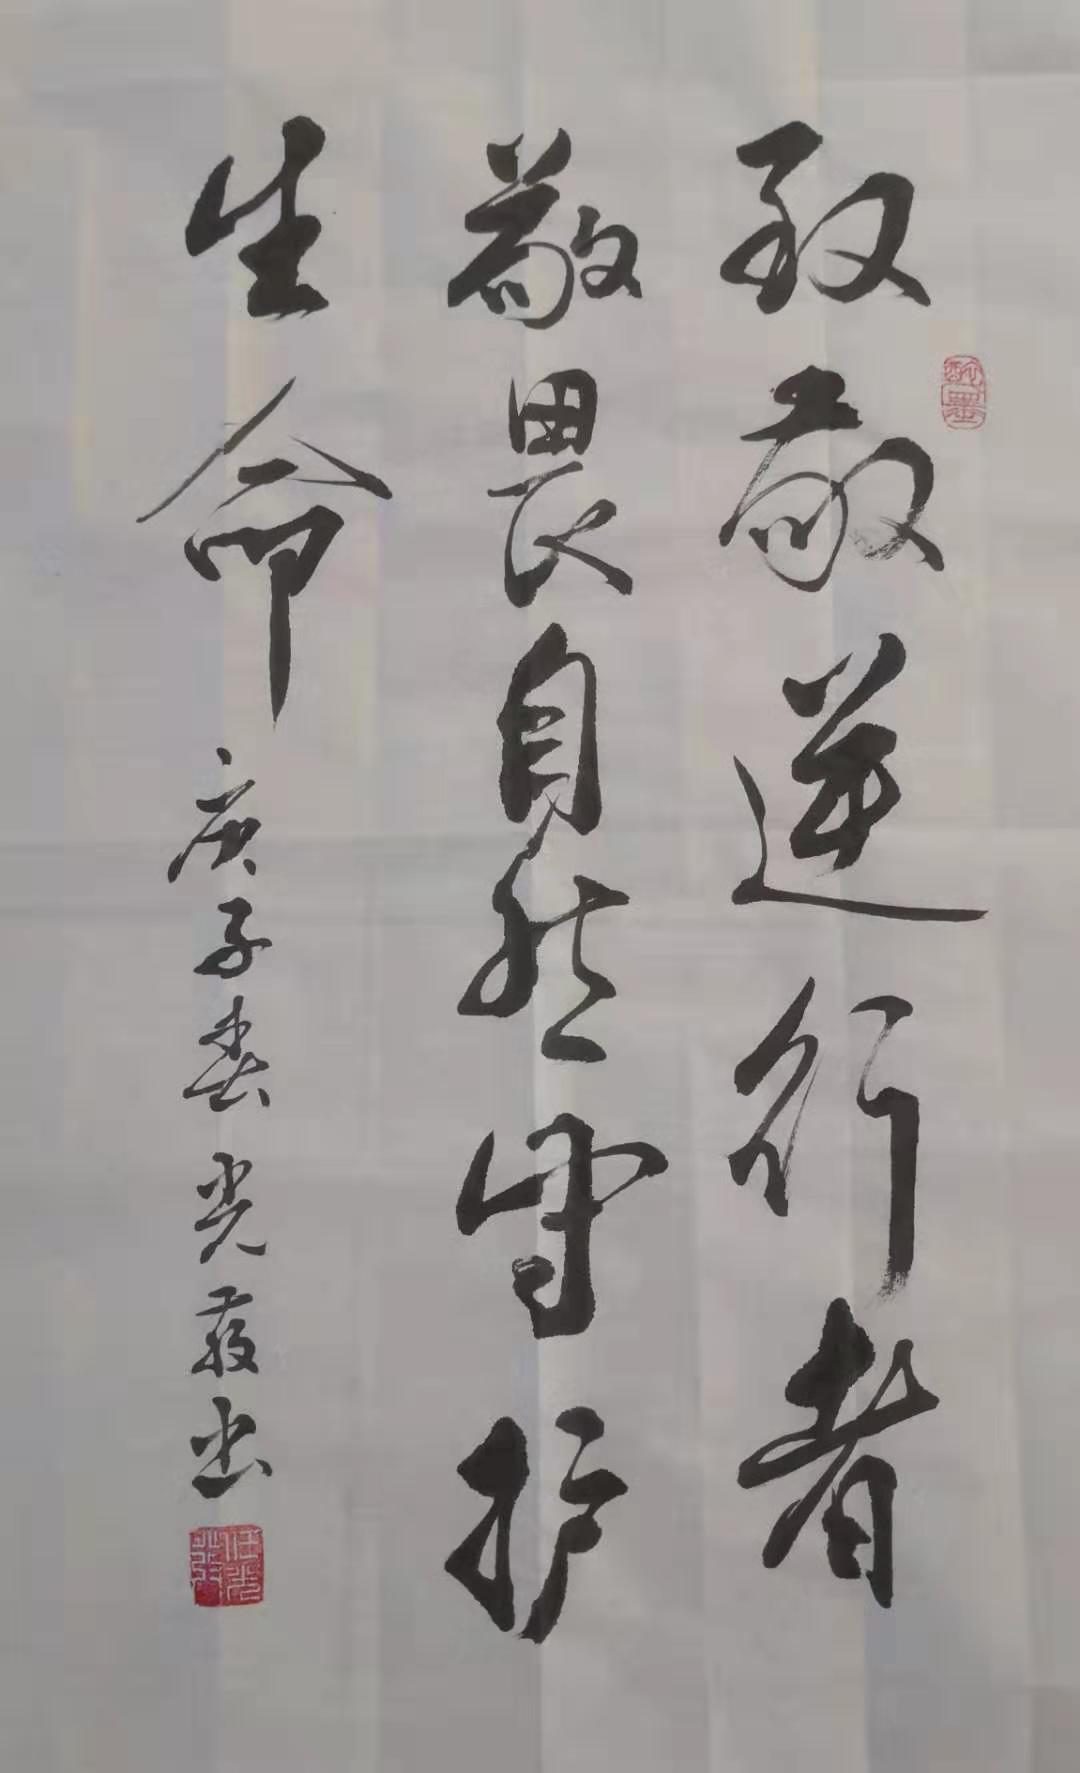 致敬逆行者
敬畏自然守护
生命
庚子春光发书